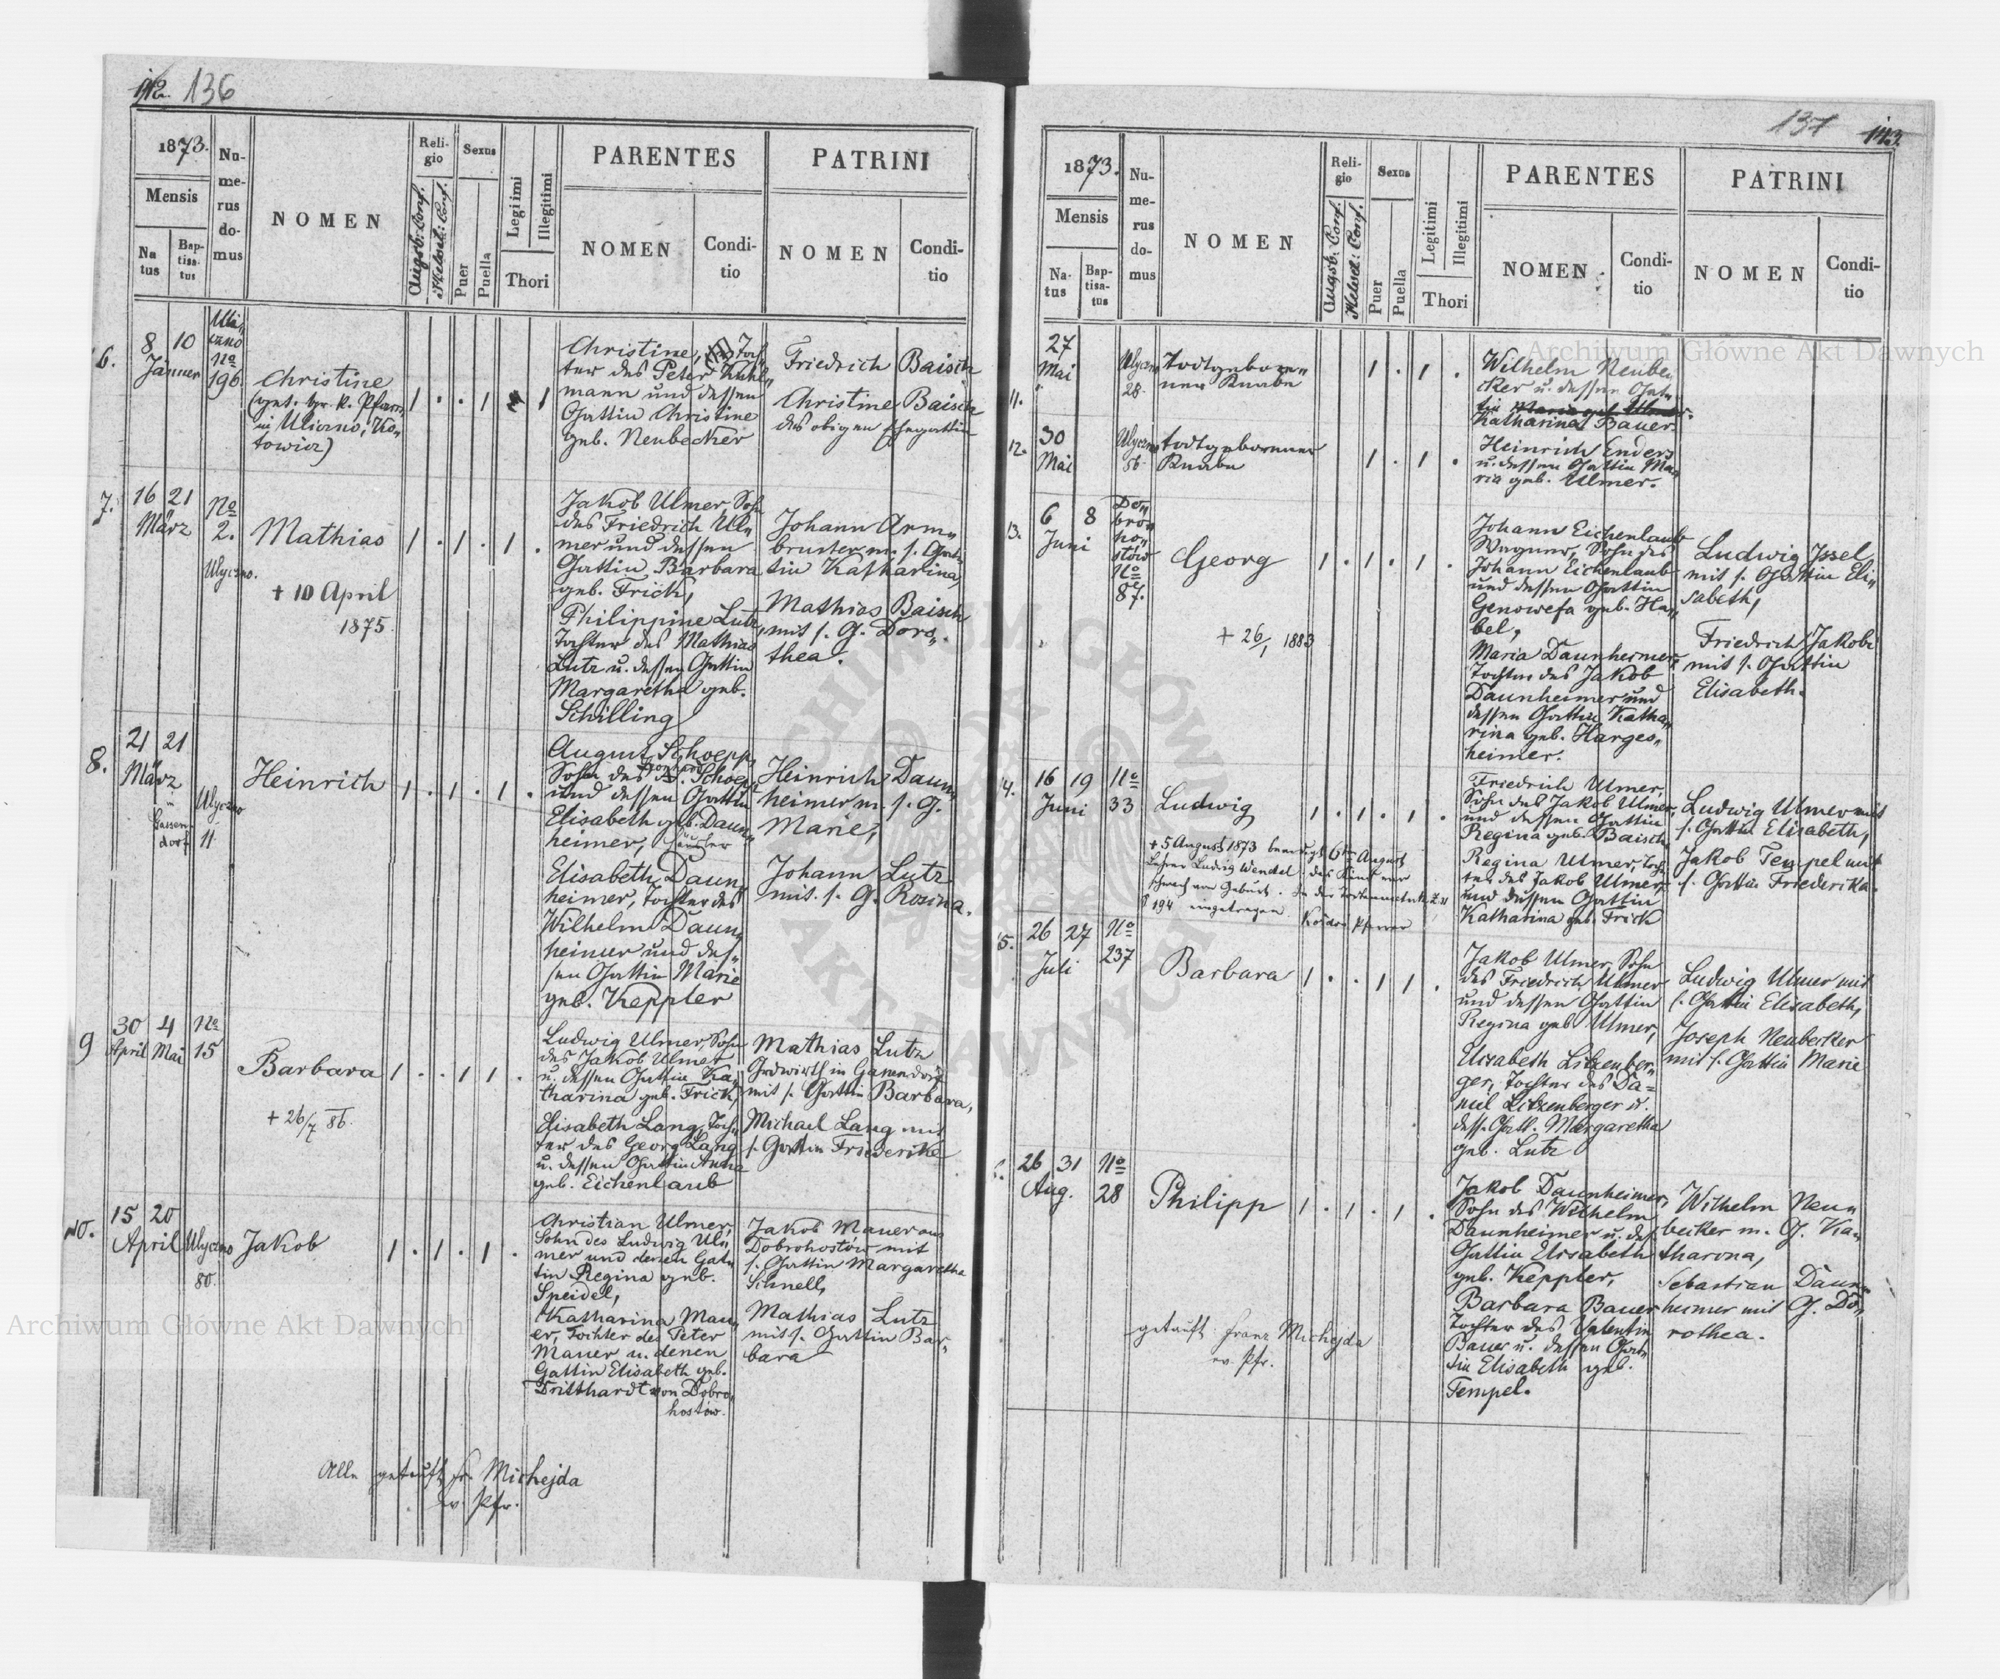 142. 136
1873.
Mensis
Na
tus
Bap-
tisa-
tus
Nu-
me-
rus
do-
mus
NOMEN
Reli-
gio
Augsb: Conf.
Helvet: Conf.
Sexus
Puer
Puella
Legi imi
Illegitimi
Thori
PARENTES
NOMEN
Condi-
tio
PATRINI
NOMEN
Condi-
tio
6.
8 10
Jänner
No
196.
Christine
(get. v. r. k. Pfarr
in Uliczno, Ko-
towicz)
Christine, Toch-
ter des Peter Kuhl-
mann und dessen
Gattin Christine
geb. Neubecker
Friedrich Baisch
Christine Baisch
des obigen Ehegattin
7.
16 21
März
No
2.
Ulyczno.
Mathias
+ 10 April
1875.
Jakob Ulmer, Sohn
des Friedrich Ul-
mer und dessen
Gattin Barbara
geb. Frick,
Philippine Lutz,
Tochter des Mathias
Lutz u. dessen Gattin
Margaretha geb.
Schilling
Johann Arm-
bruster m. s. Gat-
tin Katharina,
Mathias Baisch
mit s. G. Doro-
thea.
8.
21 21
März
Gassen-
dorf
Ulyczno
11
Heinrich
August Schoepp,
Sohn des Schoepp
und dessen Gattin
Elisabeth geb. Daun-
heimer,
Elisabeth Daun-
heimer, Tochter des
Wilhelm Daun-
heimer und des-
sen Gattin Marie
geb. Keppler
Heinrich Daun-
heimer m. s. G.
Marie,
Johann Lutz
mit s. G. Rosina.
9
30 4
April Mai
No
15
Barbara
+ 26/7 86.
Ludwig Ulmer, Sohn
des Jakob Ulmer
u. dessen Gattin Ka-
tharina geb. Frick,
Elisabeth Lang, Toch-
ter des Georg Lang
u. dessen Gattin Anna
geb. Eichenlaub
Mathias Lutz
Grdwirth in Gassendorf
mit s. Gattin Barbara,
Michael Lang mit
s. Gattin Friederike
10.
15 20
April
Ulyczno
80.
Jakob
Christian Ulmer,
Sohn des Ludwig Ul-
mer und denen Gat-
tin Regina geb.
Speidel,
Katharina Mau-
er, Tochter des Peter
Mauer u. denen
Gattin Elisabeth geb.
Tritthardt von Dobro-
hostów.
Jakob Mauer aus
Dobrohostów mit
s. Gattin Margaretha
Schnell,
Mathias Lutz
mit s. Gattin Bar-
bara
Alle getauft Fr. Michejda
ev. Pfr.
137 143
1873.
Mensis
Na-
tus
Bap-
tisa-
tus
Nu-
me-
rus
do-
mus
NOMEN
Reli-
gio
Augsb: Conf.
Helvet: Conf.
Sexus
Puer
Puella
Legitimi
Illegitimi
Thori
PARENTES
NOMEN
Condi-
tio
PATRINI
NOMEN
Condi-
tio
11.
27
Mai
Ulyczno
28.
todtgebore-
ner Knabe
Wilhelm Neube-
cker u. dessen Gat-
tin Maria geb. Ulmer
Katharina Bauer.
12.
30
Mai
Ulyczno
86.
todtgeborener
Knabe
Heinrich Enders
u. dessen Gattin Ma-
ria geb. Ulmer.
13.
6 8
Juni
Do-
bro-
ho-
stów
No
87.
Georg
+ 26/1 1883
Johann Eichenlaub
Wagner, Sohn des
Johann Eichenlaub
und dessen Gattin
Genowefa geb. Ha-
bel,
Maria Daunheimer,
Tochter des Jakob
Daunheimer und
dessen Gattin Katha-
rina geb. Harges-
heimer.
Ludwig Issel
mit s. Gattin Eli-
sabeth,
Friedrich Jakobi
mit s. Gattin
Elisabeth.
14.
16 19
Juni
No
33
Ludwig
+ 5 August 1873 6ten August
Lehrer Ludwig Wendel; das Kind war
schwach von Geburt.
S 194 eingetragen.
Pfarrer
Friedrich Ulmer,
Sohn des Jakob Ulmer
und dessen Gattin
Regina geb. Baisch
Regina Ulmer, Toch-
ter des Jakob Ulmer
und dessen Gattin
Katharina geb. Frick
Ludwig Ulmer mit
s. Gattin Elisabeth,
Jakob Tempel mit
s. Gattin Friederika.
15.
26 27
Juli
No
237
Barbara
Jakob Ulmer, Sohn
des Friedrich Ulmer
und dessen Gattin
Regina geb. Ulmer,
Elisabeth Litzenber-
ger, Tochter des Da-
niel Litzenberger u.
dess. Gatt. Margaretha
geb. Lutz
Ludwig Ulmer mit
s. Gattin Elisabeth,
Joseph Neubecker
mit s. Gattin Marie
26 31
Aug.
No
28
Philipp
Jakob Daunheimer,
Sohn des Wilhelm
Daunheimer u. des.
Gattin Elisabeth
geb. Keppler,
Barbara Bauer
Tochter des Valentin
Bauer u. dessen Gat-
tin Elisabeth geb.
Tempel.
Wilhelm Neu-
becker m. G. Ka-
tharina,
Sebastian Daun-
heimer mit G. Do-
rothea.
getauft Franz Michejda
ev. Pfr.
Archiwum Główne Akt Dawnych
Archiwum Główne Akt Dawnych
ARCHIWUM GŁÓWNE
AKT DAWNYCH